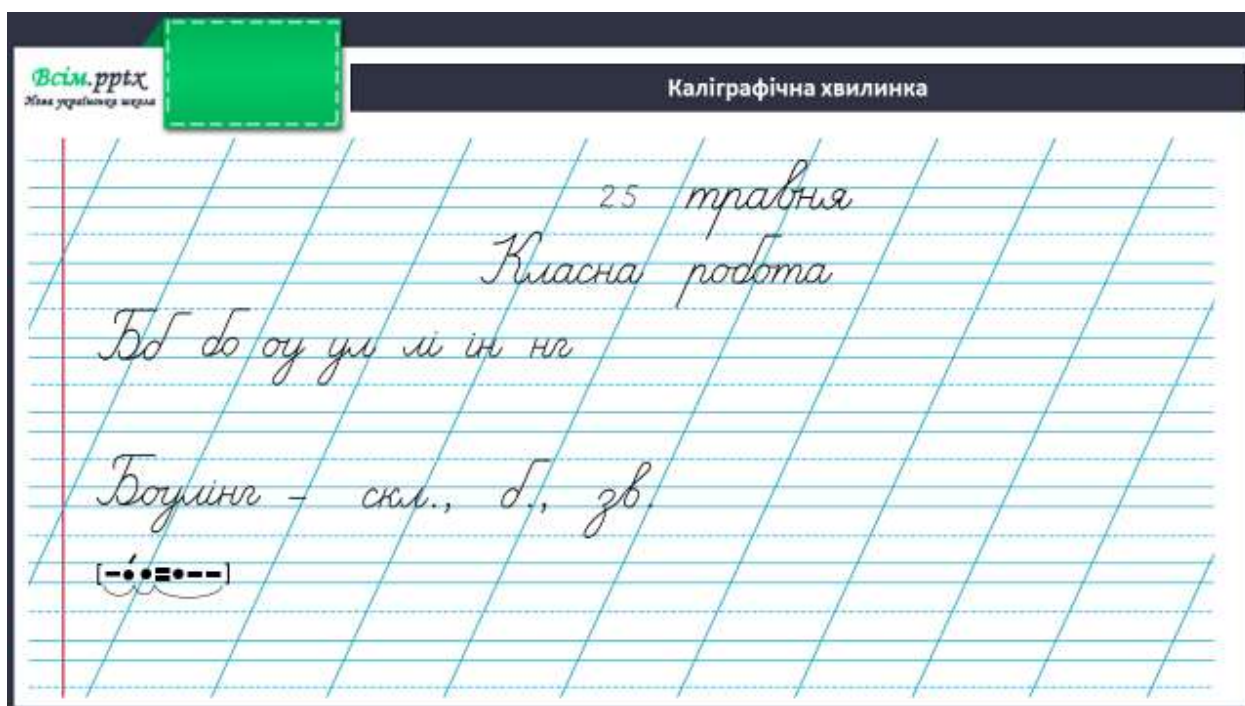 Всім.pptx
Нова українська школа
Каліграфічна хвилинка
25 травня
Класна робота
Бб бо оу ул лі ін нг
Боулінг - скл., б., зв.
[–•́•=•––]